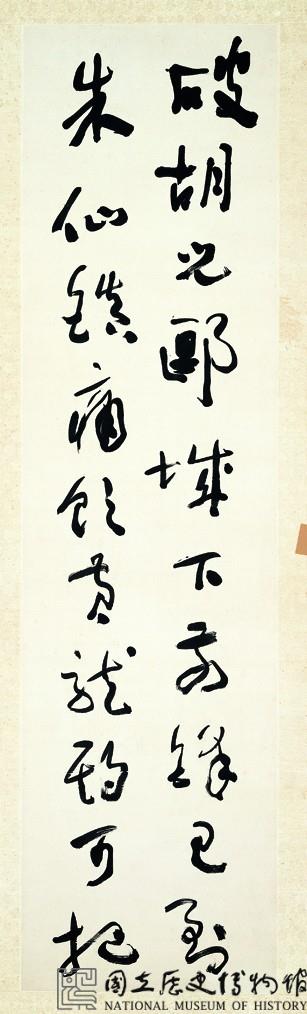 破胡兒郾城下前鋒已到
朱仙鎮痛飲黃龍可把
國立歷史博物館
NATIONAL MUSEUM OF HISTORY